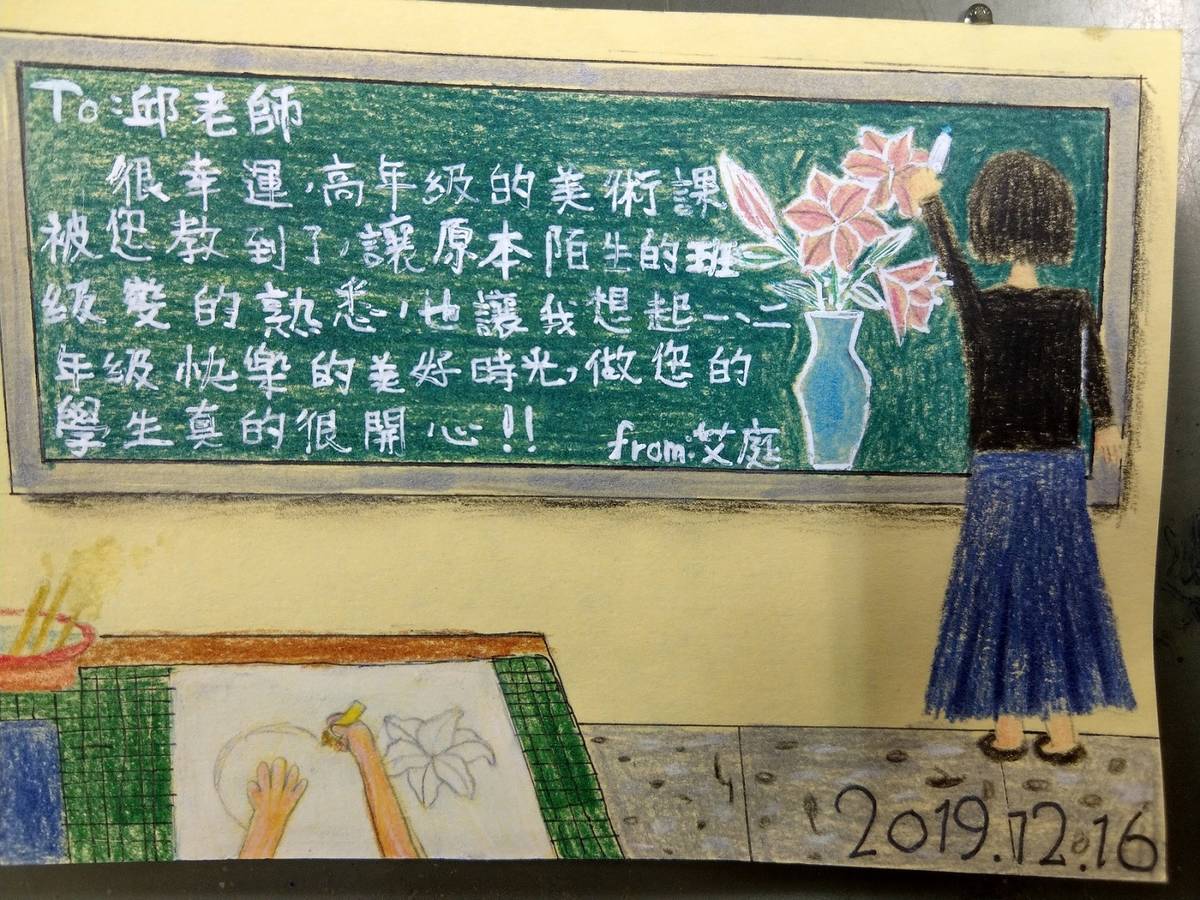 To:邱老師
很幸運,高年級的美術課
被您教到了,讓原本陌生的班
級變的熟悉,也讓我想起一、二
年級快樂的美好時光,做您的
學生真的很開心!!
from:艾庭
2019.12.16